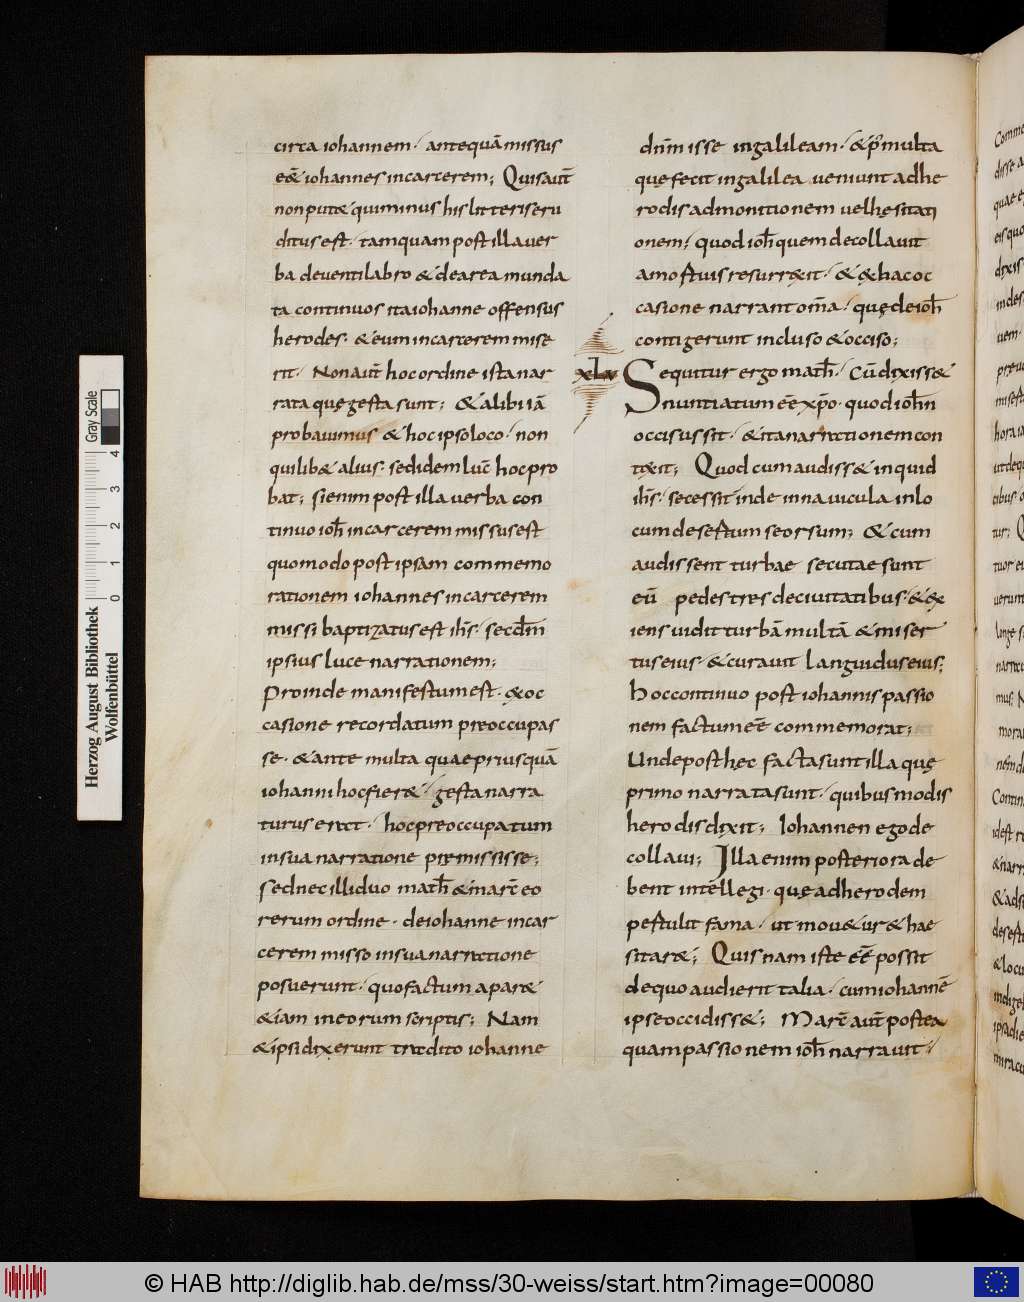 circa iohannem· antequā missus
e& iohannes in carcerem; Quis aut̄
non put& qui minus his litteris eru
ditus est· tamquam post illa ver
ba de ventilabro & de area munda
ta continuos ita iohanne offensus
herodes· & eum in carcerem mise
rit· Non aut̄ hoc ordine ista nar
rata que gesta sunt; & alibi iā
probauimus & hoc ipso loco· non
quilib& alius· sed idem luc̄ hoc pro
bat; si enim post illa verba con
tinuo ioh̄ in carcerem missus est
quomodo post ipsam commemo
rationem iohannes in carcerem
missi baptizatus est ih̄s· secdm̄
ipsius luce narrationem;
Proinde manifestum est· ę& oc
casione recordatum preoccupas
se· & ante multa quae priusquā
iohanni hoc fier&· gesta narra
turus er&· hoc preoccupatum
in sua narratione premississe;
Sed nec illi duo math̄ & marc̄ eo
rerum ordine· de iohanne in car
cerem misso in sua narratione
posuerunt· quo factum apar&
& iam in eorum scriptis; Nam
& ipsi dixerunt tradito iohanne
dnm̄ isse in galileam· & p̄ multa
quę fecit in galilea veniunt ad he
rodis admonitionem vel hesitati
onem; quod ioh̄ quem decollauit
a mostuis resurrexit· & ex hac oc
casione narrant om̄a· quę de ioh̄
contigerunt incluso & occiso;
xlv Sequitur ergo math̄· Cū dixiss&
nuntiatum eē xp̄o· quod ioh̄n
occisus sit· & ita narrationem con
texit; Quod cum audiss& inquid
ih̄s· secessit inde in nauicula in lo
cum desertum seorsum; & cum
audissent turbae secutae sunt
eū pedestres de ciuitatibus· & ex
iens uidit turbā multā & miser
tus eius· & curauit languidus eius;
Hoc continuo post iohannis passio
nem factum eē commemorat;
Unde post hęc facta sunt illa quę
primo narrata sunt· quibus modis
herodis dixit; Iohannen ego de
collaui; Illa enim posteriora de
bent intēllegi· quę ad herodem
pertulit fama· ut mou&ur & hae
sitar&; Quisnam iste eē possit
de quo audierit talia· cum iohannē
ipse occidiss&; Marc̄ aut̄ postea
quam passionem ioh̄ narrauit·
Herzog August Bibliothek
Wolfenbüttel
Gray Scale
0 1 2 3 4
© HAB http://diglib.hab.de/mss/30-weiss/start.htm?image=00080